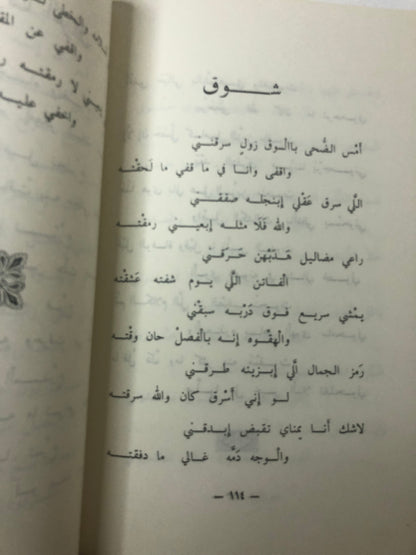 شــوق
أمْس الضُّحى باالْوق زولٍ سرقـني
واقفى وانـا في ما قفي ما لَحقْته
اللّي سرق عَقْلي إبنجله صفقـني
والله فَلَا مثـله إبعيـني رمقْـته
راعي مفاليل هَدَبْهن حَـرَقـني
الْفاتـن اللِّي يـوم شفته عشقْـته
يمْشي سريع فـوق دَرْبه سبقْني
والْهقْوه إنـه بالْفضلْ حان وقْته
رمز الجمال الّي إبزينه طرقـني
لـو إني أسْرق كان والله سرقـته
لاشك أنـا يمناي تقبض إبدقـني
والـوجه دَمَّه غـالي ما دفقـته
— ١١٤ —
واقفي عن
لا رمقـته
واخفي عليـه